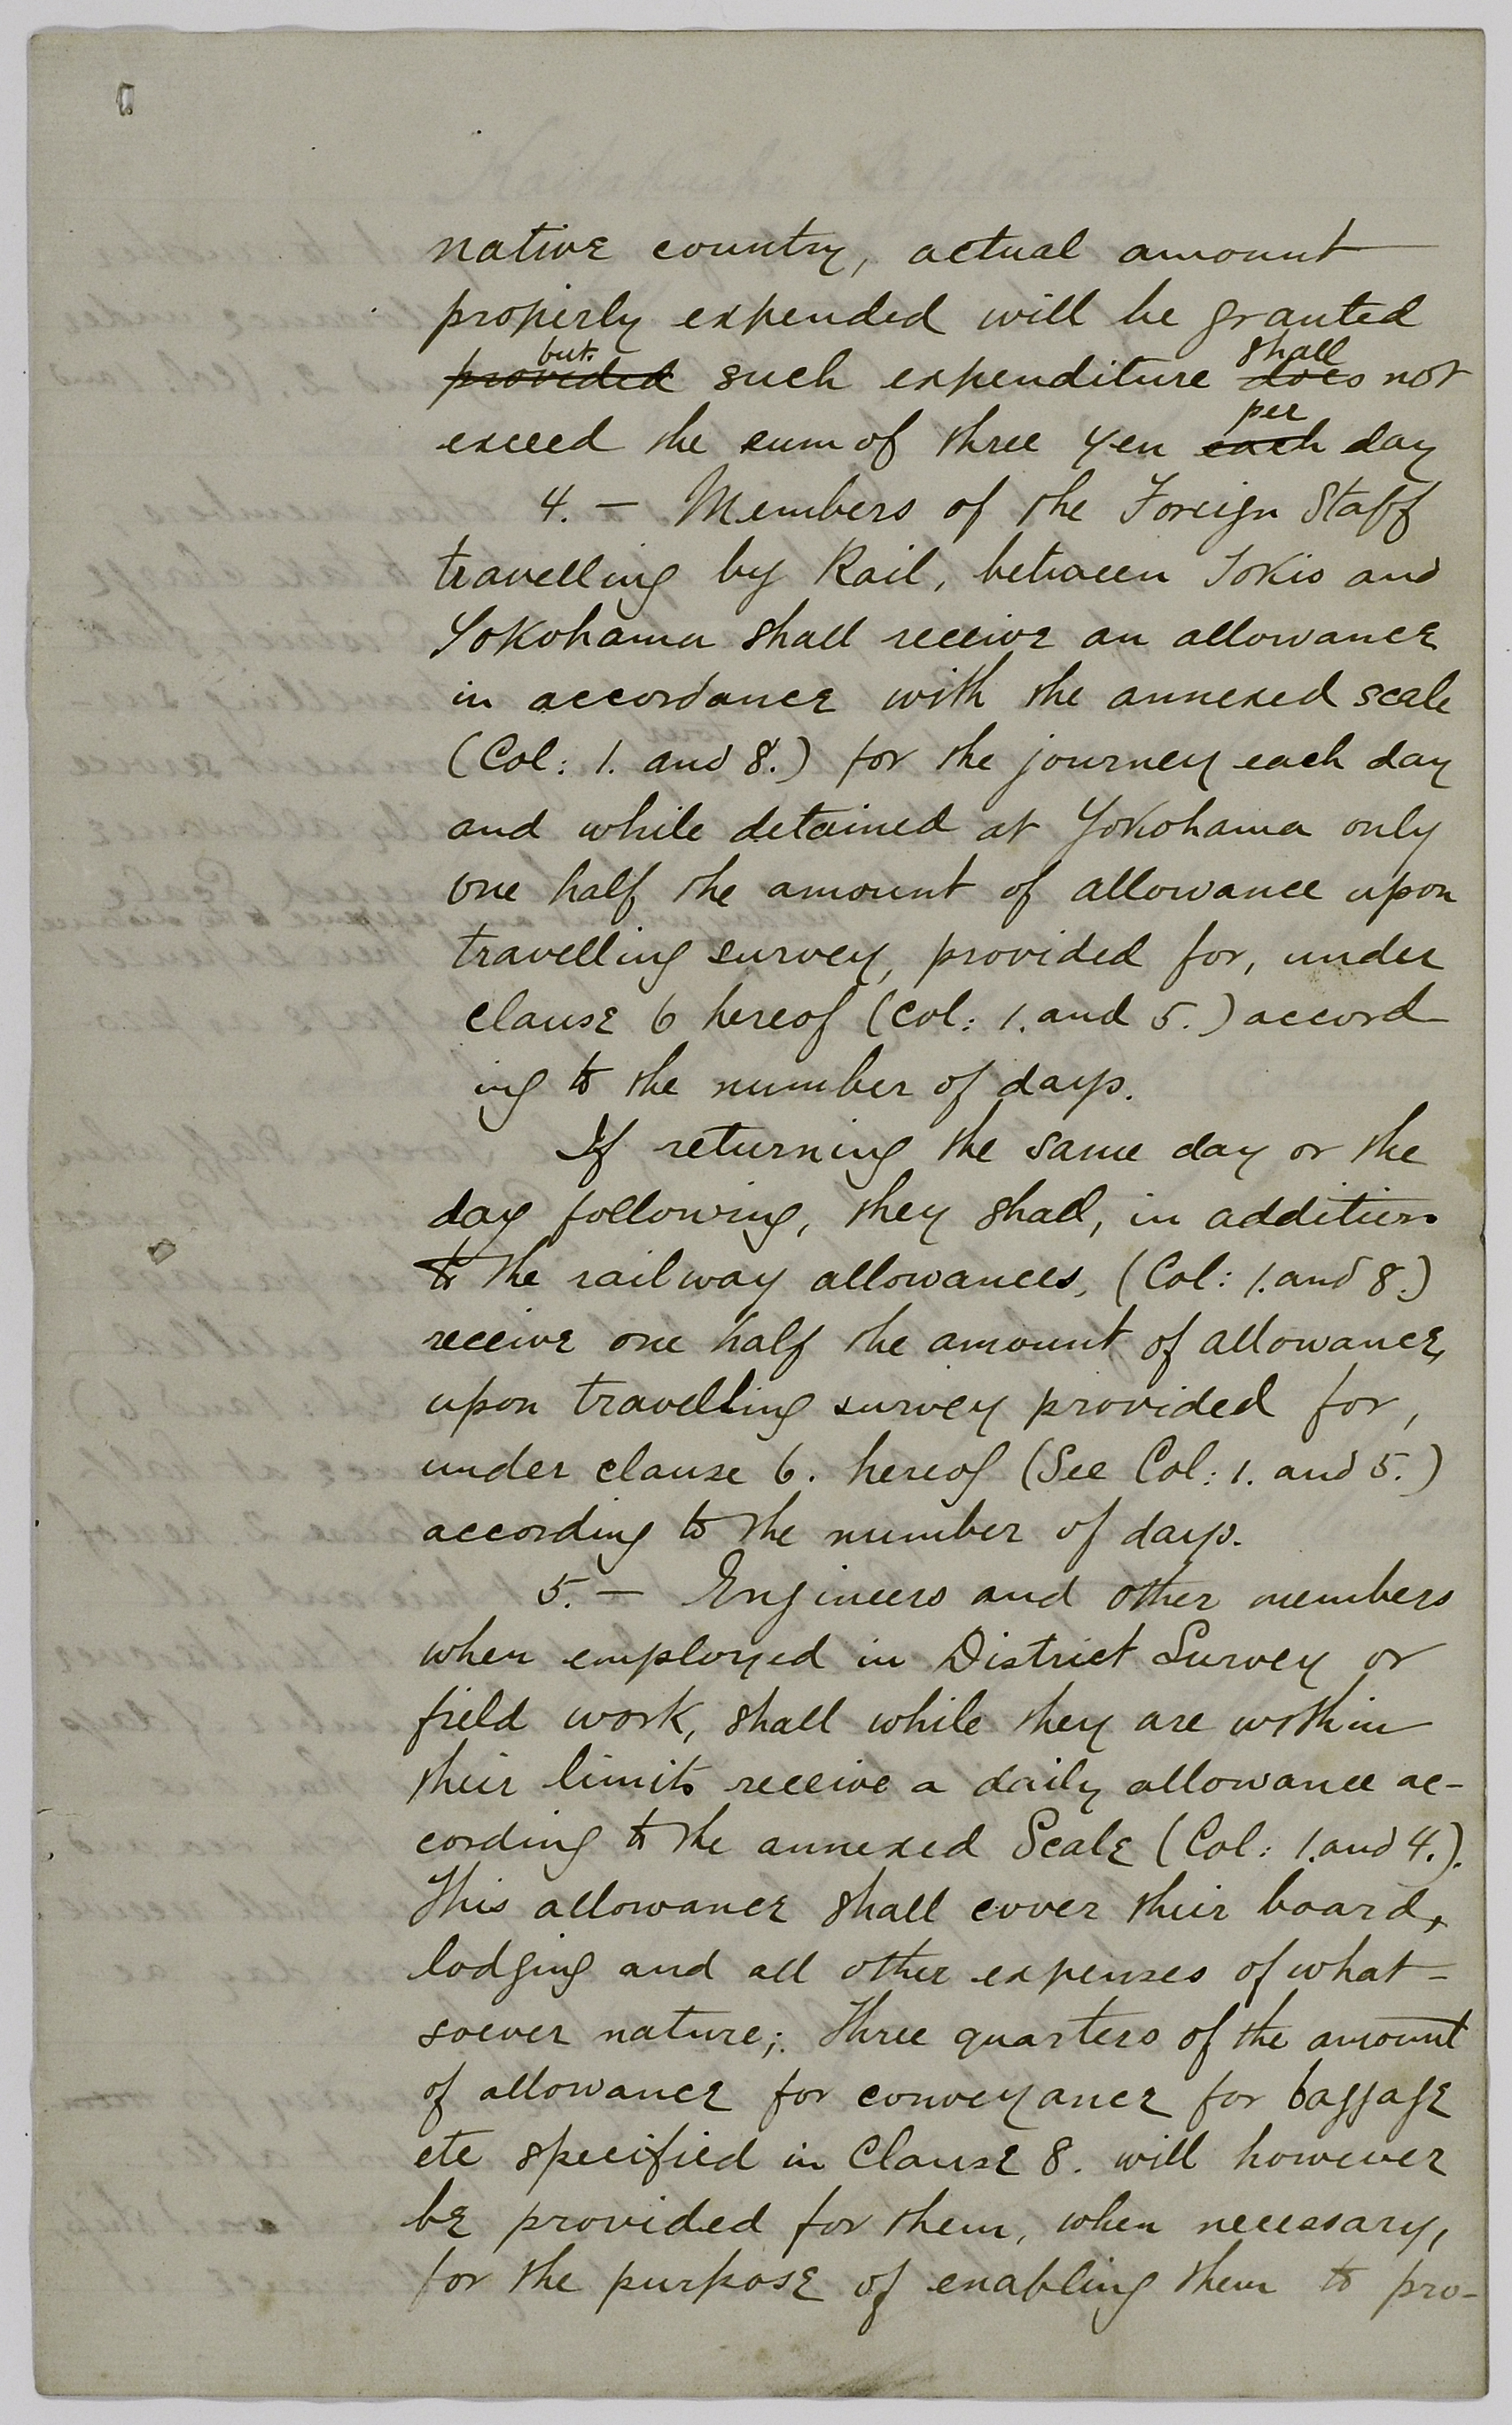 native country, actual amount
properly expended will be granted
but
provided such expenditure shall does not
exceed the sum of three yen per each day
4. — Members of the Foreign Staff
travelling by Rail, between Tokio and
Yokohama shall receive an allowance
in accordance with the annexed scale
(Col: 1. and 8.) for the journey each day
and while detained at Yokohama only
one half the amount of allowance upon
travelling survey, provided for, under
clause 6 hereof (Col: 1. and 5.) accord
ing to the number of days.
If returning the same day or the
day following, they shall, in addition
to the railway allowances, (Col: 1. and 8.)
receive one half the amount of allowance,
upon travelling survey provided for,
under clause 6. hereof (See Col: 1. and 5.)
according to the number of days.
5. — Engineers and other members
when employed in District Survey or
field work, shall while they are within
their limits receive a daily allowance ac-
cording to the annexed Scale (Col: 1. and 4.).
This allowance shall cover their board,
lodging and all other expenses of what-
soever nature; Three quarters of the amount
of allowance for conveyance for baggage
etc specified in Clause 8. will however
be provided for them, when necessary,
for the purpose of enabling them to pro-